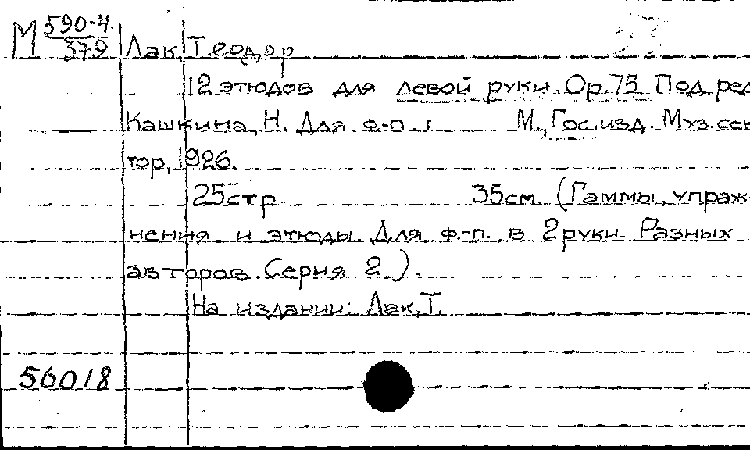 М 590-4
379
Лак, Теодор
12 этюдов для левой руки. Op. 75 Под ред
Кашкина, Н. Для ф-п. М., Гос.изд. Муз.сек
тор, 1926.
25стр 35см. (Гаммы, упраж-
нения и этюды. Для ф-п. в 2 руки. Разных
авторов. Серия 2.).
На издании: Лак, Т.
56018